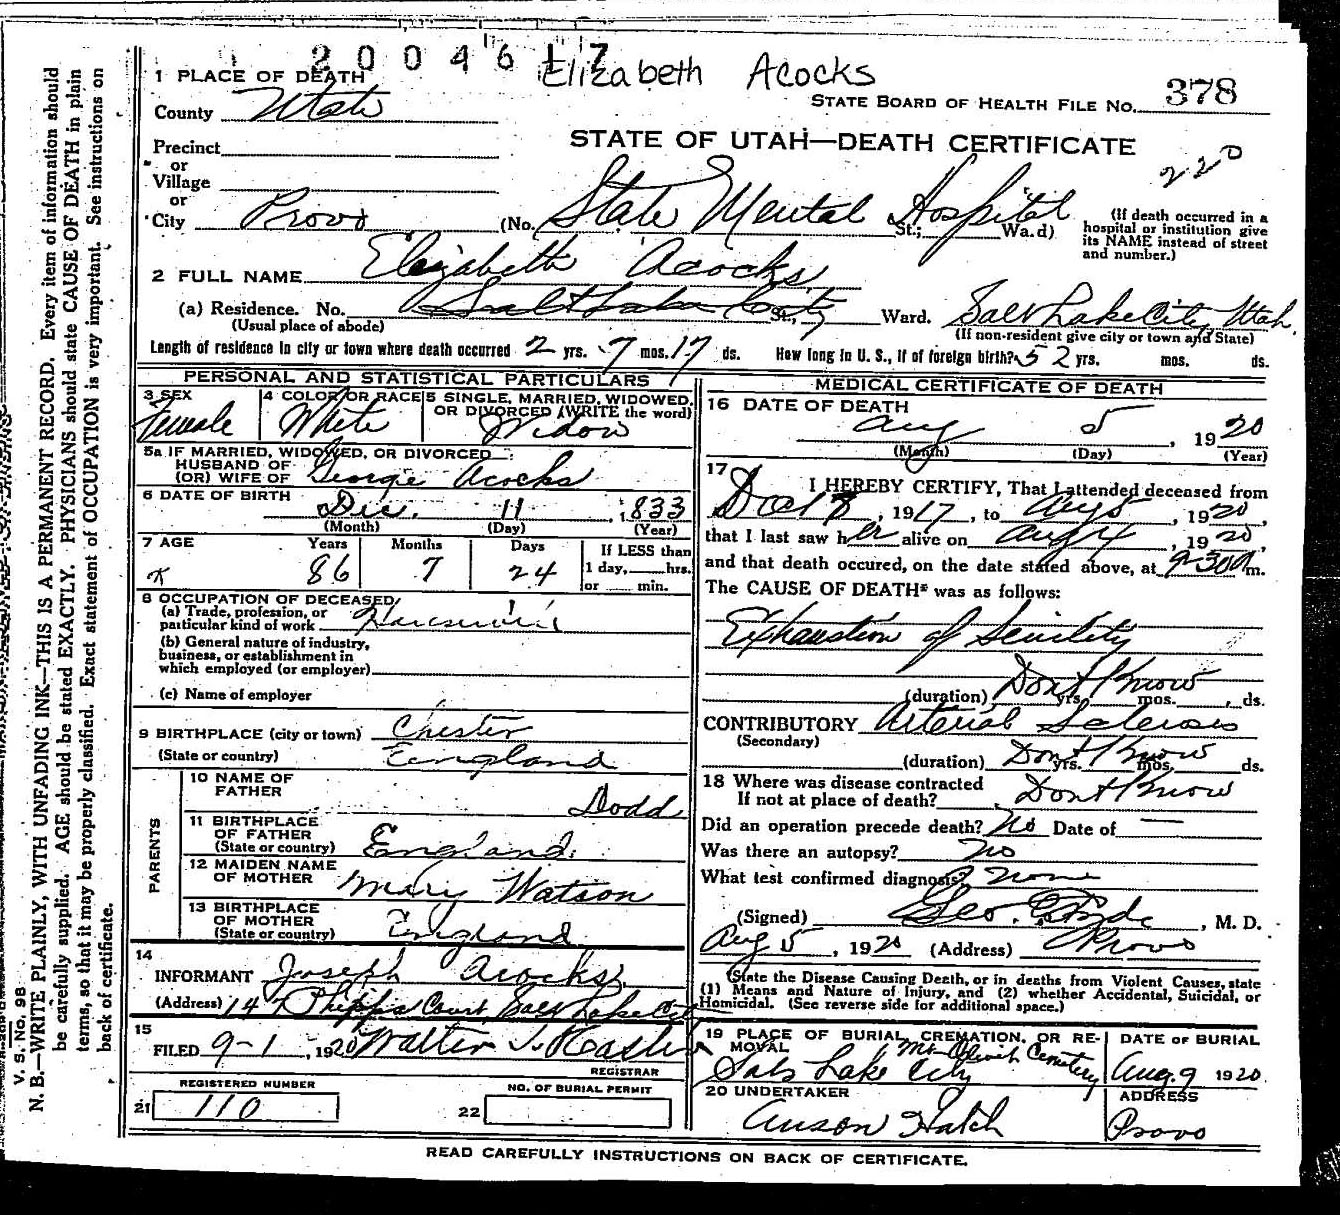 2004617
Elizabeth Acocks
1 PLACE OF DEATH
STATE BOARD OF HEALTH FILE NO. 378
County Utah
STATE OF UTAH—DEATH CERTIFICATE
220
Precinct
or
Village
or
City Provo (No. State Mental Hospital St.; Ward)
(If death occurred in a hospital or institution give its NAME instead of street and number.)
2 FULL NAME Elizabeth Acocks
(a) Residence. No. Salt Lake City St., Ward. Salt Lake City, Utah.
(Usual place of abode) (If non-resident give city or town and State)
Length of residence in city or town where death occurred 2 yrs. 7 mos. 17 ds. How long in U. S., if of foreign birth? 52 yrs. mos. ds.
PERSONAL AND STATISTICAL PARTICULARS
3 SEX Female
4 COLOR OR RACE White
5 SINGLE, MARRIED, WIDOWED, OR DIVORCED (WRITE the word) Widow
5a IF MARRIED, WIDOWED, OR DIVORCED
HUSBAND OF
(OR) WIFE OF George Acocks
6 DATE OF BIRTH Dec. 11, 1833
(Month) (Day) (Year)
7 AGE Years Months Days If LESS than
86 7 24 1 day, hrs.
or min.
8 OCCUPATION OF DECEASED
(a) Trade, profession, or particular kind of work Housewife
(b) General nature of industry, business, or establishment in which employed (or employer)
(c) Name of employer
9 BIRTHPLACE (city or town) Chester
(State or country) England
PARENTS
10 NAME OF FATHER Dodd
11 BIRTHPLACE OF FATHER (State or country) England
12 MAIDEN NAME OF MOTHER Mary Watson
13 BIRTHPLACE OF MOTHER (State or country) England
14
INFORMANT Joseph Acocks
(Address) 147 Phipps Court Salt Lake City
15
FILED 9-1, 1920 Walter T. Hasler
REGISTRAR
REGISTERED NUMBER
21 110
NO. OF BURIAL PERMIT
22
MEDICAL CERTIFICATE OF DEATH
16 DATE OF DEATH
Aug 5, 1920
(Month) (Day) (Year)
17
I HEREBY CERTIFY, That I attended deceased from
1917, to Aug 5, 1920,
that I last saw her alive on Aug 4, 1920,
and that death occured, on the date stated above, at 9-30 m.
The CAUSE OF DEATH* was as follows:
Exhaustion of Senility
(duration) Dont Know yrs. mos. ds.
CONTRIBUTORY Arterial Sclerosis
(Secondary)
(duration) Dont Know yrs. mos. ds.
18 Where was disease contracted
If not at place of death? Dont Know
Did an operation precede death? No Date of —
Was there an autopsy? No
What test confirmed diagnosis? None
(Signed) Geo. E. Hyde, M. D.
Aug 5, 1920 (Address) Provo
*State the Disease Causing Death, or in deaths from Violent Causes, state
(1) Means and Nature of Injury, and (2) whether Accidental, Suicidal, or
Homicidal. (See reverse side for additional space.)
19 PLACE OF BURIAL, CREMATION, OR REMOVAL
Mt Olivet Cemetery
Salt Lake City
DATE OF BURIAL
Aug. 9 1920
20 UNDERTAKER
Anson Hatch
ADDRESS
Provo
READ CAREFULLY INSTRUCTIONS ON BACK OF CERTIFICATE.
V. S. No. 98
N. B.—WRITE PLAINLY, WITH UNFADING INK—THIS IS A PERMANENT RECORD. Every item of information should
be carefully supplied. AGE should be stated EXACTLY. PHYSICIANS should state CAUSE OF DEATH in plain
terms, so that it may be properly classified. Exact statement of OCCUPATION is very important. See instructions on
back of certificate.